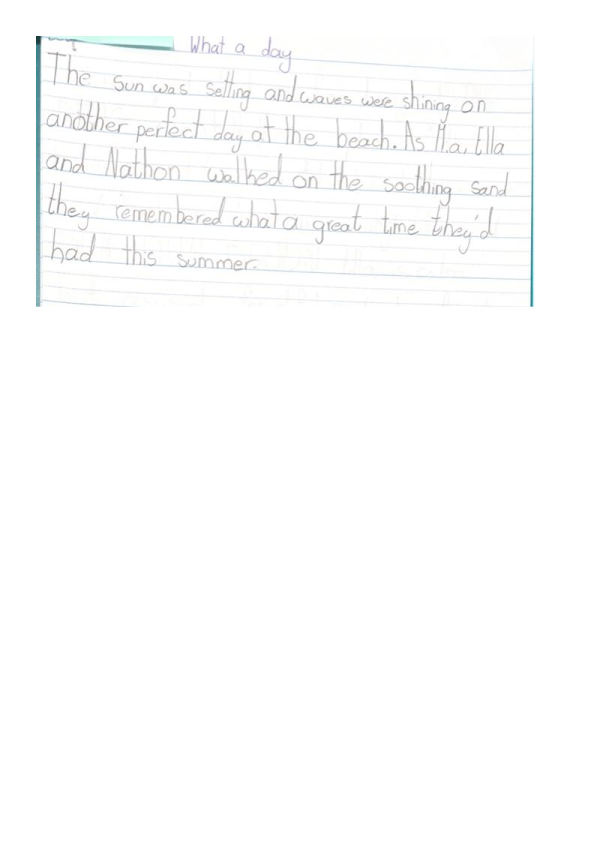 What a day
The sun was setting and waves were shining on
another perfect day at the beach. As Ella
and Nathon walked on the soothing sand
they remembered what a great time they'd
had this summer.